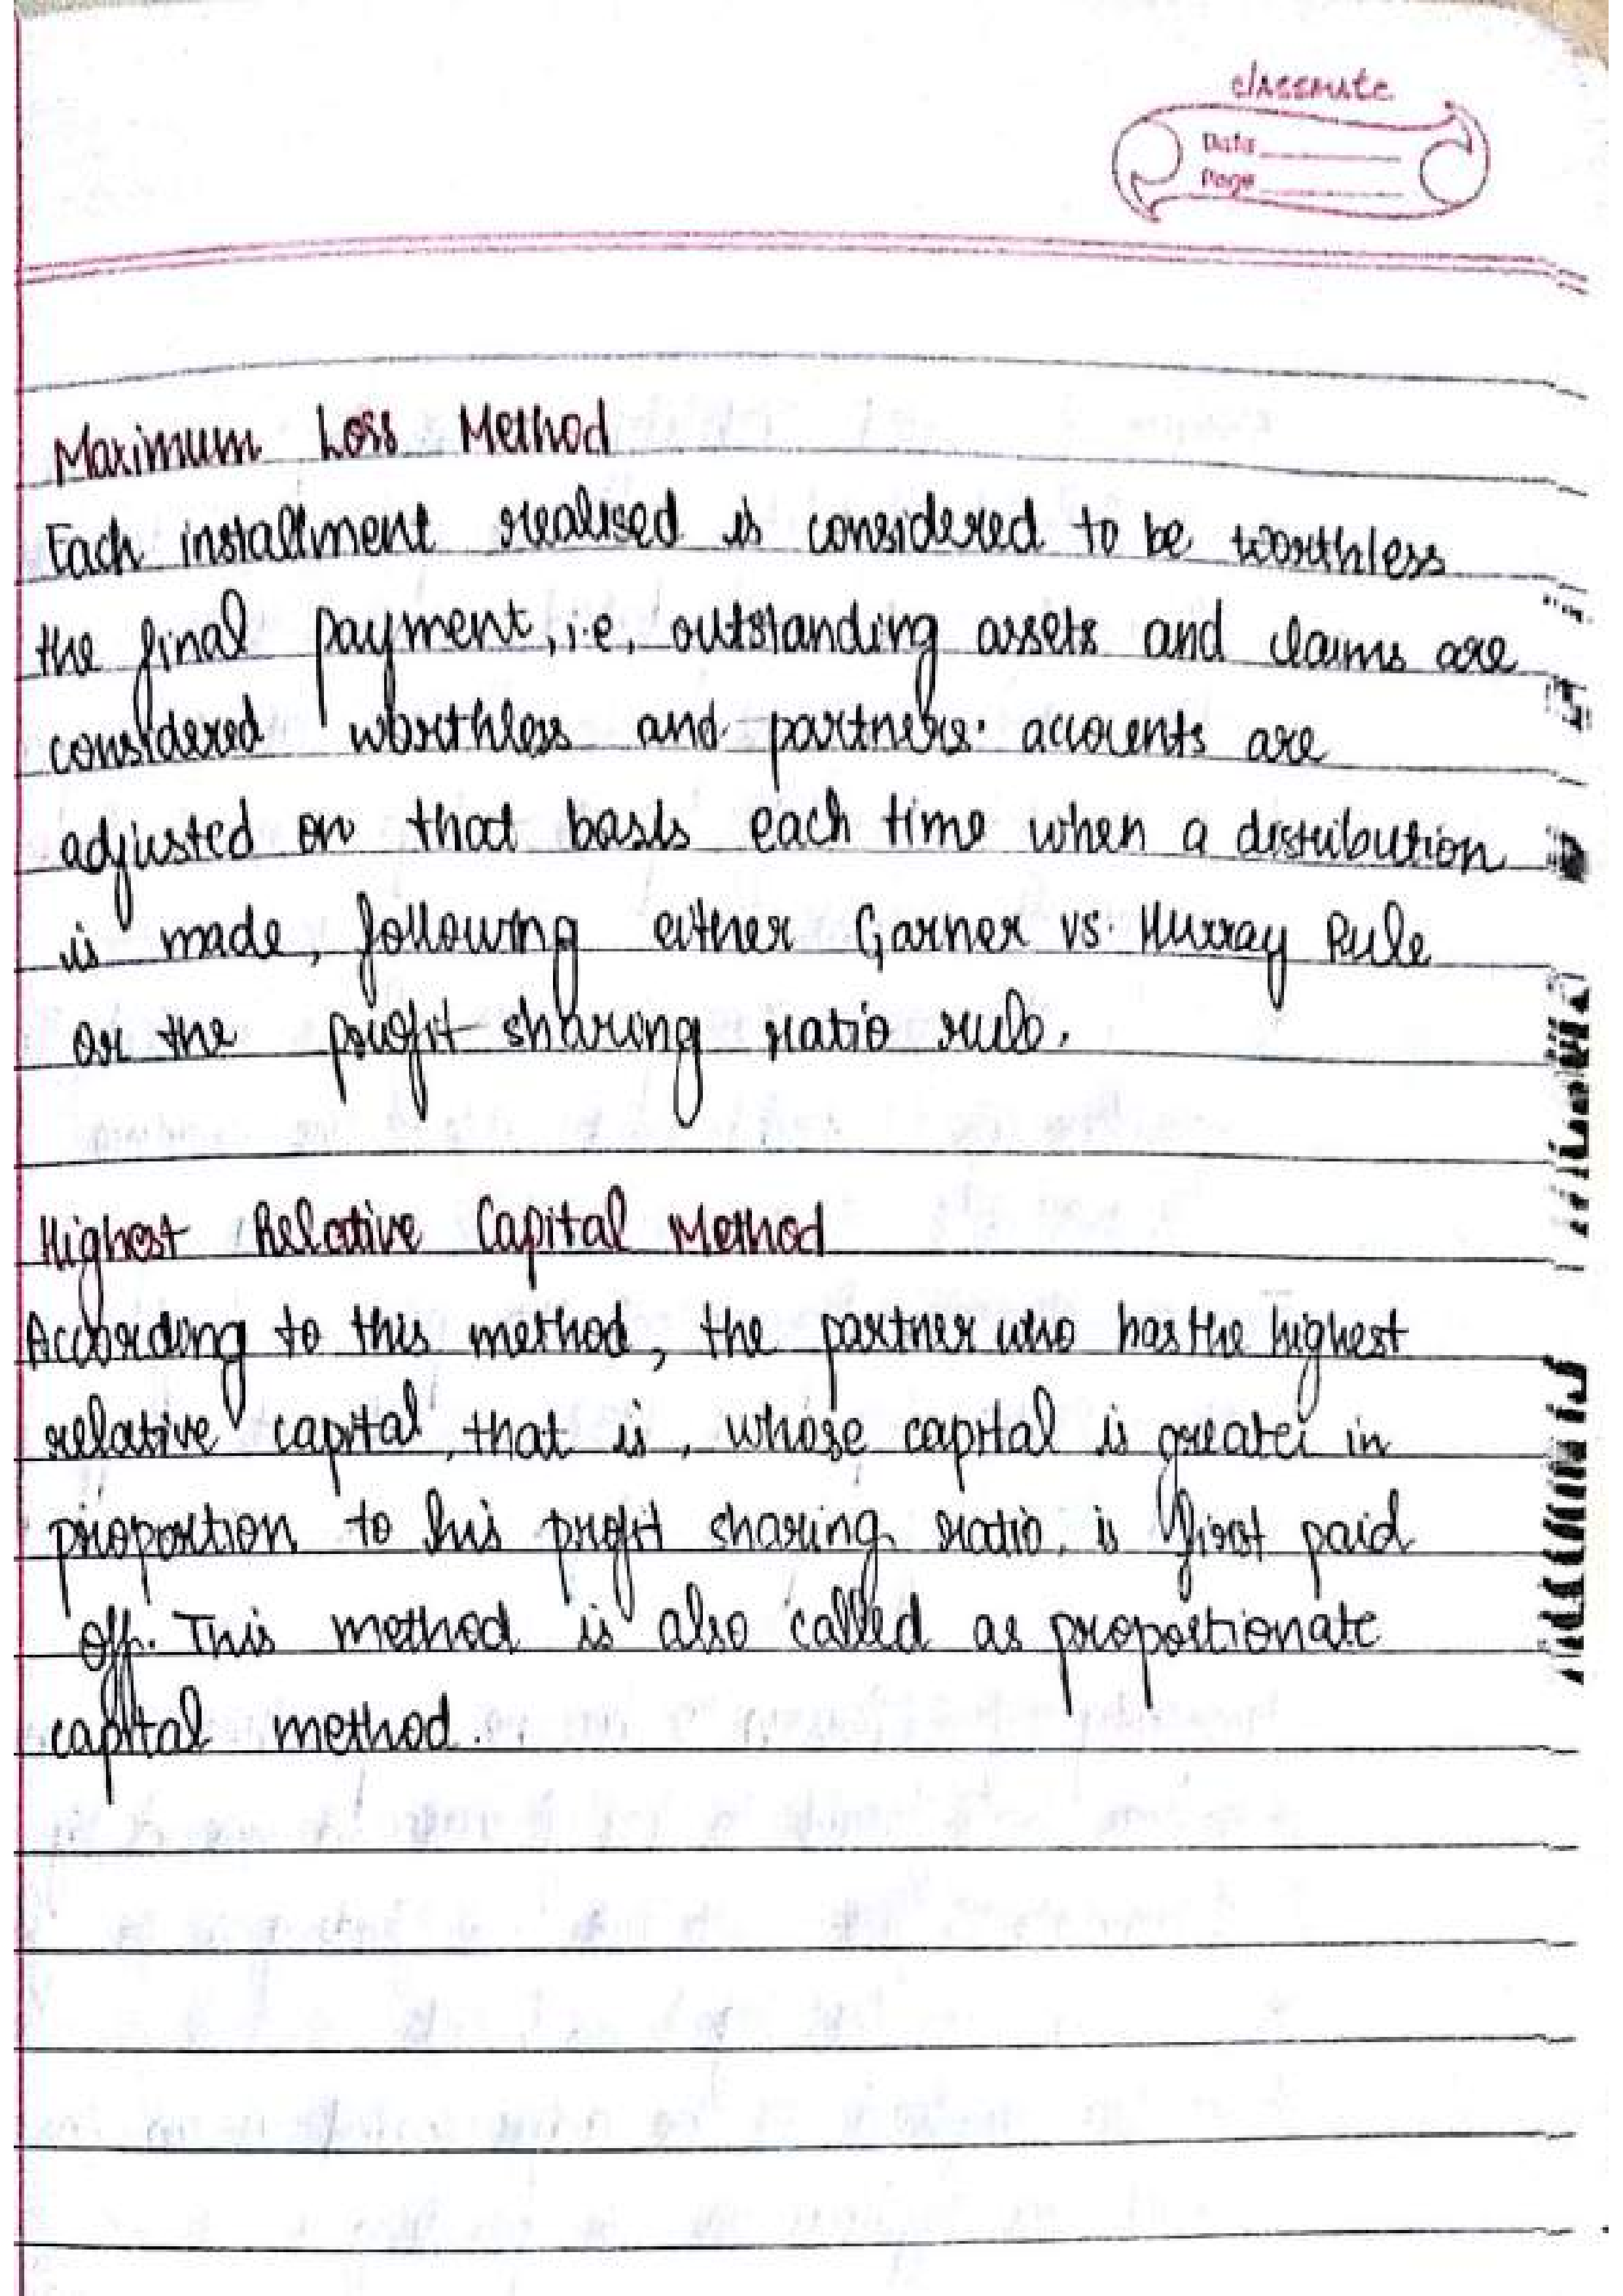 classmate
Date
Page
Maximum Loss Method
Each installment realised is considered to be worthless
the final payment, i.e, outstanding assets and claims are
considered worthless and partners' accounts are
adjusted on that basis each time when a distribution
is made, following either Garner vs. Murray Rule
or the profit sharing ratio rule.
Highest Relative Capital Method
According to this method, the partner who has the highest
relative capital, that is, whose capital is greater in
proportion to his profit sharing ratio, is first paid
off. This method is also called as proportionate
capital method.